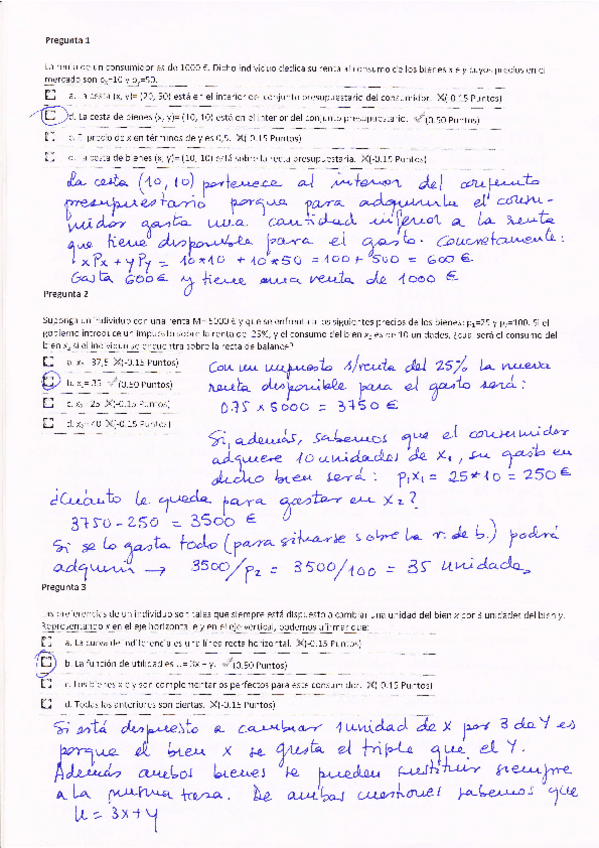 Pregunta 1
La renta de un consumidor es de 1000 €. Dicho individuo dedica su renta al consumo de los bienes x e y cuyos precios en el
mercado son px=10 y py=50.
a. La cesta (x, y)= (20, 50) está en el interior del conjunto presupuestario del consumidor. X(-0.15 Puntos)
La cesta de bienes (x, y)= (10, 10) está en el interior del conjunto presupuestario. ✓(0.50 Puntos)
precio de x en términos de y es 0,5. X(-0.15 Puntos)
La cesta de bienes (x, y)= (10, 10) está sobre la recta presupuestaria. X(-0.15 Puntos)
La cesta (10,10) pertenece al interior del conjunto
presupuestario porque para adquirirla el consu-
midor gasta una cantidad inferior a la renta
que tiene disponible para el gasto. Concretamente:
xPx + yPy = 10*10 + 10*50 = 100 + 500 = 600 €
Gasta 600€ y tiene una renta de 1000 €
Pregunta 2
Suponga un individuo con una renta M= 5000 € y que se enfrenta a los siguientes precios de los bienes: p1=25 y p2=100. Si el
gobierno introduce un impuesto sobre la renta del 25%, y el consumo del bien x1 es de 10 unidades, ¿cuál será el consumo del
bien x2 si el individuo se encuentra sobre la recta de balance?
a. x2= 37,5 X(-0.15 Puntos)
b. x2= 35 ✓(0.50 Puntos)
c. x2= 25 X(-0.15 Puntos)
d. x2= 40 X(-0.15 Puntos)
Con un impuesto s/renta del 25% la nueva
renta disponible para el gasto será:
0.75 x 5000 = 3750 €
Si, además, sabemos que el consumidor
adquiere 10 unidades de x1, su gasto en
dicho bien será: p1x1 = 25*10 = 250 €
¿Cuánto le queda para gastar en x2?
3750 - 250 = 3500 €
Si se lo gasta todo (para situarse sobre la r. de b.) podrá
adquirir → 3500/p2 = 3500/100 = 35 unidades
Pregunta 3
Las preferencias de un individuo son tales que siempre está dispuesto a cambiar una unidad del bien x por 3 unidades del bien y.
Representando x en el eje horizontal e y en el eje vertical, podemos afirmar que:
a. La curva de indiferencia es una línea recta horizontal. X(-0.15 Puntos)
b. La función de utilidad es U= 3x + y. ✓(0.50 Puntos)
c. Los bienes x e y son complementarios perfectos para este consumidor. X(-0.15 Puntos)
d. Todas las anteriores son ciertas. X(-0.15 Puntos)
Si está dispuesto a cambiar 1 unidad de X por 3 de Y es
porque el bien X le gusta el triple que el Y.
Además ambos bienes se pueden sustituir siempre
a la misma tasa. De ambas cuestiones sabemos que
U = 3x + y